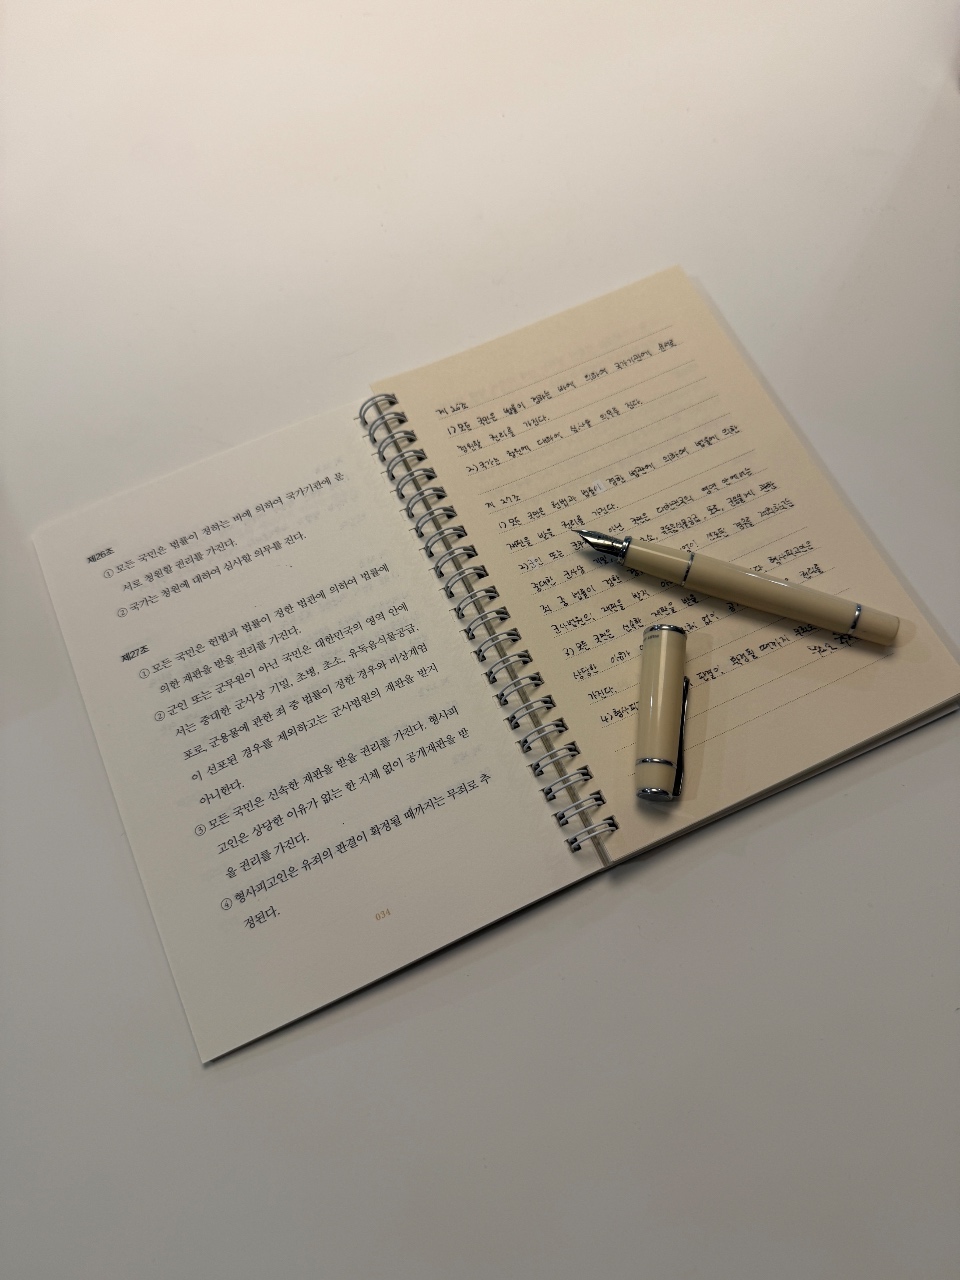 제26조
① 모든 국민은 법률이 정하는 바에 의하여 국가기관에 문
서로 청원할 권리를 가진다.
② 국가는 청원에 대하여 심사할 의무를 진다.
제27조
① 모든 국민은 헌법과 법률이 정한 법관에 의하여 법률에
의한 재판을 받을 권리를 가진다.
② 군인 또는 군무원이 아닌 국민은 대한민국의 영역 안에
서는 중대한 군사상 기밀, 초병, 초소, 유독음식물공급,
포로, 군용물에 관한 죄 중 법률이 정한 경우와 비상계엄
이 선포된 경우를 제외하고는 군사법원의 재판을 받지
아니한다.
③ 모든 국민은 신속한 재판을 받을 권리를 가진다. 형사피
고인은 상당한 이유가 없는 한 지체 없이 공개재판을 받
을 권리를 가진다.
④ 형사피고인은 유죄의 판결이 확정될 때까지는 무죄로 추
정된다.
034
제 26조
1) 모든 국민은 법률이 정하는 바에 의하여 국가기관에 문서로
청원할 권리를 가진다.
2) 국가는 청원에 대하여 심사할 의무를 진다.
제 27조
1) 모든 국민은 헌법과 법률이 정한 법관에 의하여 법률에 의한
재판을 받을 권리를 가진다.
2) 군인 또는 군무 아닌 국민은 대한민국의 영역 안에서는
중대한 군사상 기밀, 초소, 유독음식물공급, 포로, 군용물에 관한
죄 중 법률이 정한 선포된 경우를 제외하고는
군사법원의 재판을 받지
3) 모든 국민은 신속한 재판을 받을 형사피고인은
상당한 이유가 없이
가진다.
4) 형사피 판결이 확정될 때까지